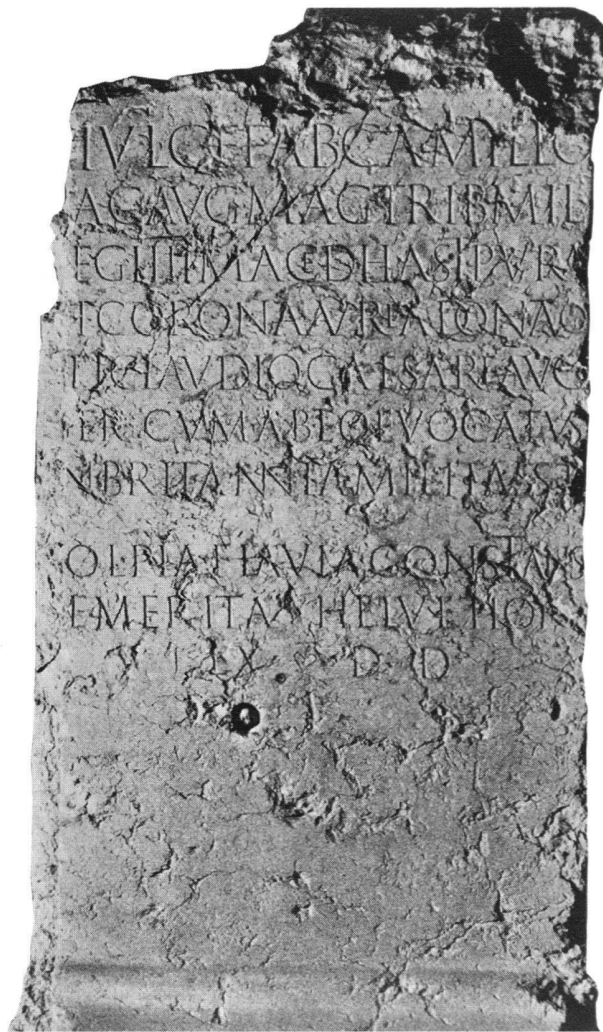 IVL C F FAB CAMILLO
AC AVG MAG TRIB MIL
EG IIII MACED HAST PVRA
T CORONA AVREA DONATO
TI CLAVDIO CAESARE AVG
TER CVM AB EO EVOCATVS
N BRITANNIA MILITASS
OL PIA FLAVIA CONSTANS
EMERITA HELVETIOR
D D